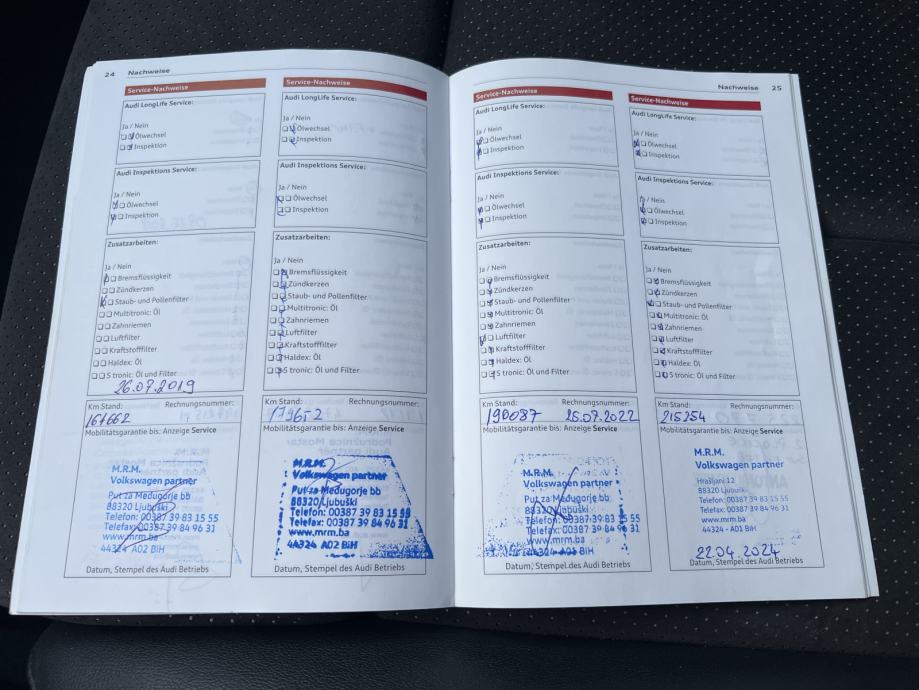 24 Nachweise
Service-Nachweise
Audi LongLife Service:
Ja / Nein
Ölwechsel
Inspektion
Audi Inspektions Service:
Ja / Nein
Ölwechsel
Inspektion
Zusatzarbeiten:
Ja / Nein
Bremsflüssigkeit
Zündkerzen
Staub- und Pollenfilter
Multitronic: Öl
Zahnriemen
Luftfilter
Kraftstofffilter
Haldex: Öl
S tronic: Öl und Filter
26.07.2019
Km Stand: Rechnungsnummer:
161662
Mobilitätsgarantie bis: Anzeige Service
M.R.M.
Volkswagen partner
Put za Međugorje bb
88320 Ljubuški
Telefon: 00387 39 83 15 55
Telefax: 00387 39 84 96 31
www.mrm.ba
44324 A02 BiH
Datum, Stempel des Audi Betriebs
Service-Nachweise
Audi LongLife Service:
Ja / Nein
Ölwechsel
Inspektion
Audi Inspektions Service:
Ja / Nein
Ölwechsel
Inspektion
Zusatzarbeiten:
Ja / Nein
Bremsflüssigkeit
Zündkerzen
Staub- und Pollenfilter
Multitronic: Öl
Zahnriemen
Luftfilter
Kraftstofffilter
Haldex: Öl
S tronic: Öl und Filter
Km Stand: Rechnungsnummer:
Mobilitätsgarantie bis: Anzeige Service
M.R.M.
Volkswagen partner
Put za Međugorje bb
88320 Ljubuški
Telefon: 00387 39 83 15 55
Telefax: 00387 39 84 96 31
www.mrm.ba
44324 A02 BiH
Datum, Stempel des Audi Betriebs
Nachweise 25
Service-Nachweise
Audi LongLife Service:
Ja / Nein
Ölwechsel
Inspektion
Audi Inspektions Service:
Ja / Nein
Ölwechsel
Inspektion
Zusatzarbeiten:
Ja / Nein
Bremsflüssigkeit
Zündkerzen
Staub- und Pollenfilter
Multitronic: Öl
Zahnriemen
Luftfilter
Kraftstofffilter
Haldex: Öl
S tronic: Öl und Filter
Km Stand: Rechnungsnummer:
190087 25.07.2022
Mobilitätsgarantie bis: Anzeige Service
M.R.M.
Volkswagen partner
Put za Međugorje bb
88320 Ljubuški
Telefon: 00387 39 83 15 55
Telefax: 00387 39 84 96 31
www.mrm.ba
44324 A02 BiH
Datum, Stempel des Audi Betriebs
Service-Nachweise
Audi LongLife Service:
Ja / Nein
Ölwechsel
Inspektion
Audi Inspektions Service:
Ja / Nein
Ölwechsel
Inspektion
Zusatzarbeiten:
Ja / Nein
Bremsflüssigkeit
Zündkerzen
Staub- und Pollenfilter
Multitronic: Öl
Zahnriemen
Luftfilter
Kraftstofffilter
Haldex: Öl
S tronic: Öl und Filter
Km Stand: Rechnungsnummer:
215254
Mobilitätsgarantie bis: Anzeige Service
M.R.M.
Volkswagen partner
Hrašljani 12
88320 Ljubuški
Telefon: 00387 39 83 15 55
Telefax: 00387 39 84 96 31
www.mrm.ba
44324 - A01 BiH
22.04.2024
Datum, Stempel des Audi Betriebs